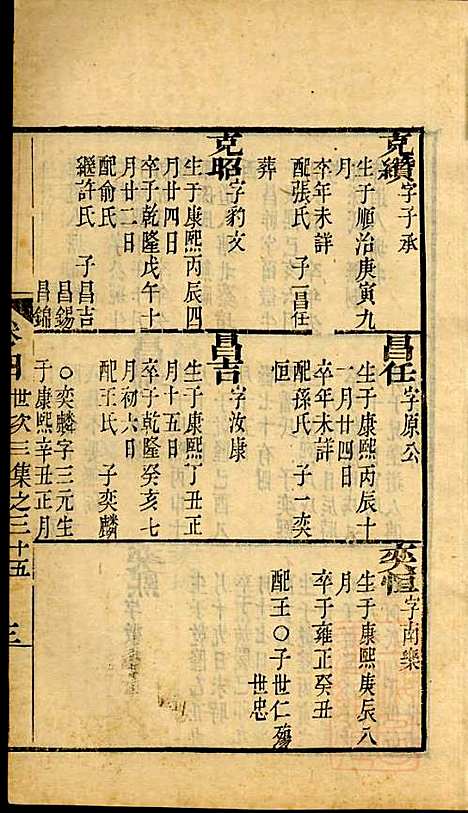 克纘字子承
生于順治庚寅九
月
卒年未詳
配張氏 子一昌任
葬
克昭字豹文
生于康熙丙辰四
月廿四日
卒于乾隆戊午十
月廿二日
配俞氏
繼許氏 子昌吉
昌錫
昌錦
昌任字原公
生于康熙丙辰十
一月廿四日
卒年未詳
配孫氏 子一奕
恒
昌吉字汝康
生于康熙丁丑正
月十五日
卒于乾隆癸亥七
月初六日
配王氏 子奕麟
○奕麟字三元生
于康熙辛丑正月
奕恒字南樂
生于康熙庚辰八
月
卒于雍正癸丑
配王○子世仁殤
世忠
世次三集之三十五
三